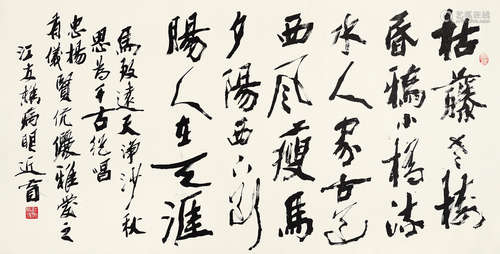 枯藤老樹
昏鴉小橋流
水人家古道
西風瘦馬
夕陽西下斷
腸人在天涯
馬致遠天淨沙秋
思為千古絕唱
忠楊
有儀
賢伉儷雅愛之
江友樵病眼近盲